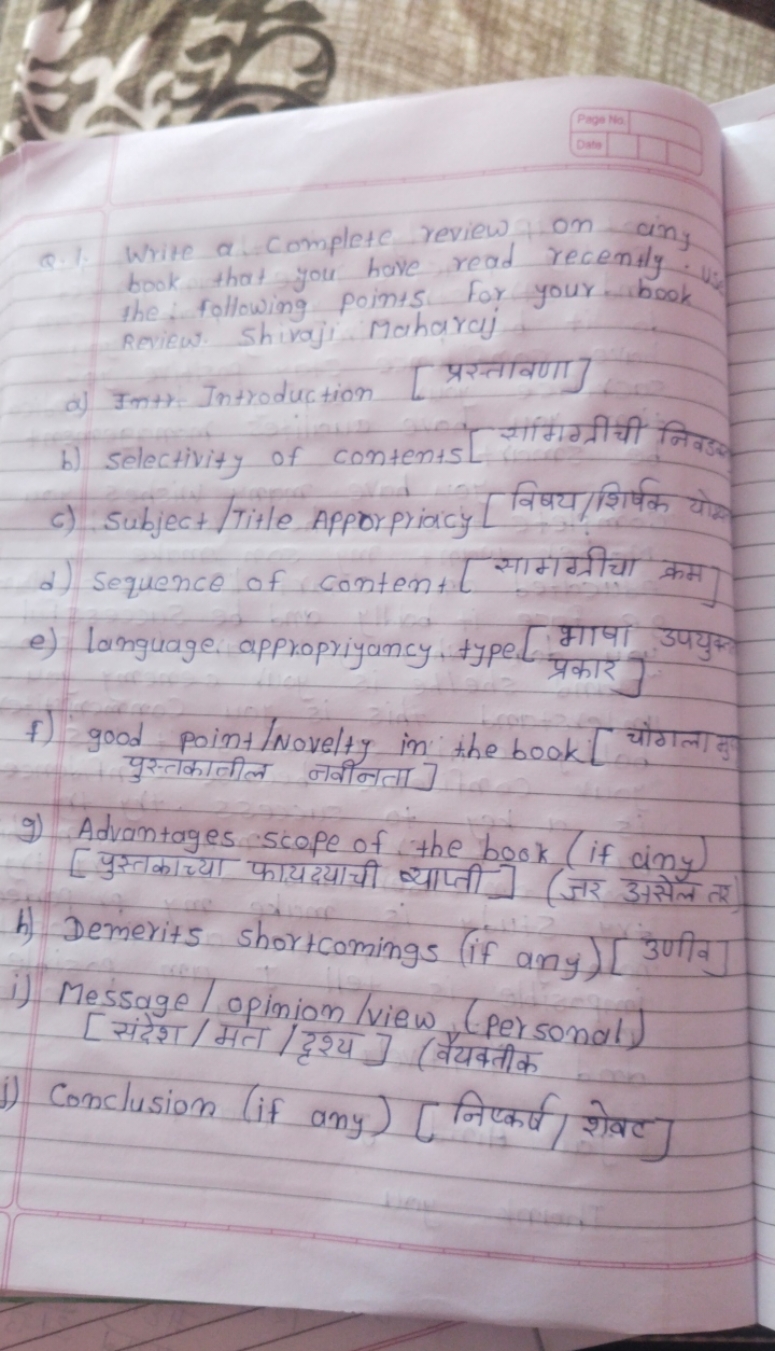 Page No.
Date
Q.1. Write a complete review on any
book that you have read recently. Use
the following points for your book
Review. Shivaji Maharaj
a) Introduction [प्रस्तावणा]
b) Selectivity of contents [सामग्रीची
c) Subject/Title Apporpriacy [विषय/शिर्षक
d) Sequence of content [सामग्रीचा क्रम]
e) language appropriyancy type [भाषा
प्रकार]
f) good point/Novelty in the book [चांगला
पुस्तकातील नवीनता]
g) Advantages scope of the book (if any)
[पुस्तकाच्या फायदयाची व्याप्ती] (जर असेल तर)
h) Demerits shortcomings (if any) [उणीव]
i) Message/opinion/view (personal)
[संदेश/मत/दृश्य] (वैयक्तीक
j) Conclusion (if any) [निष्कर्ष/शेवट]